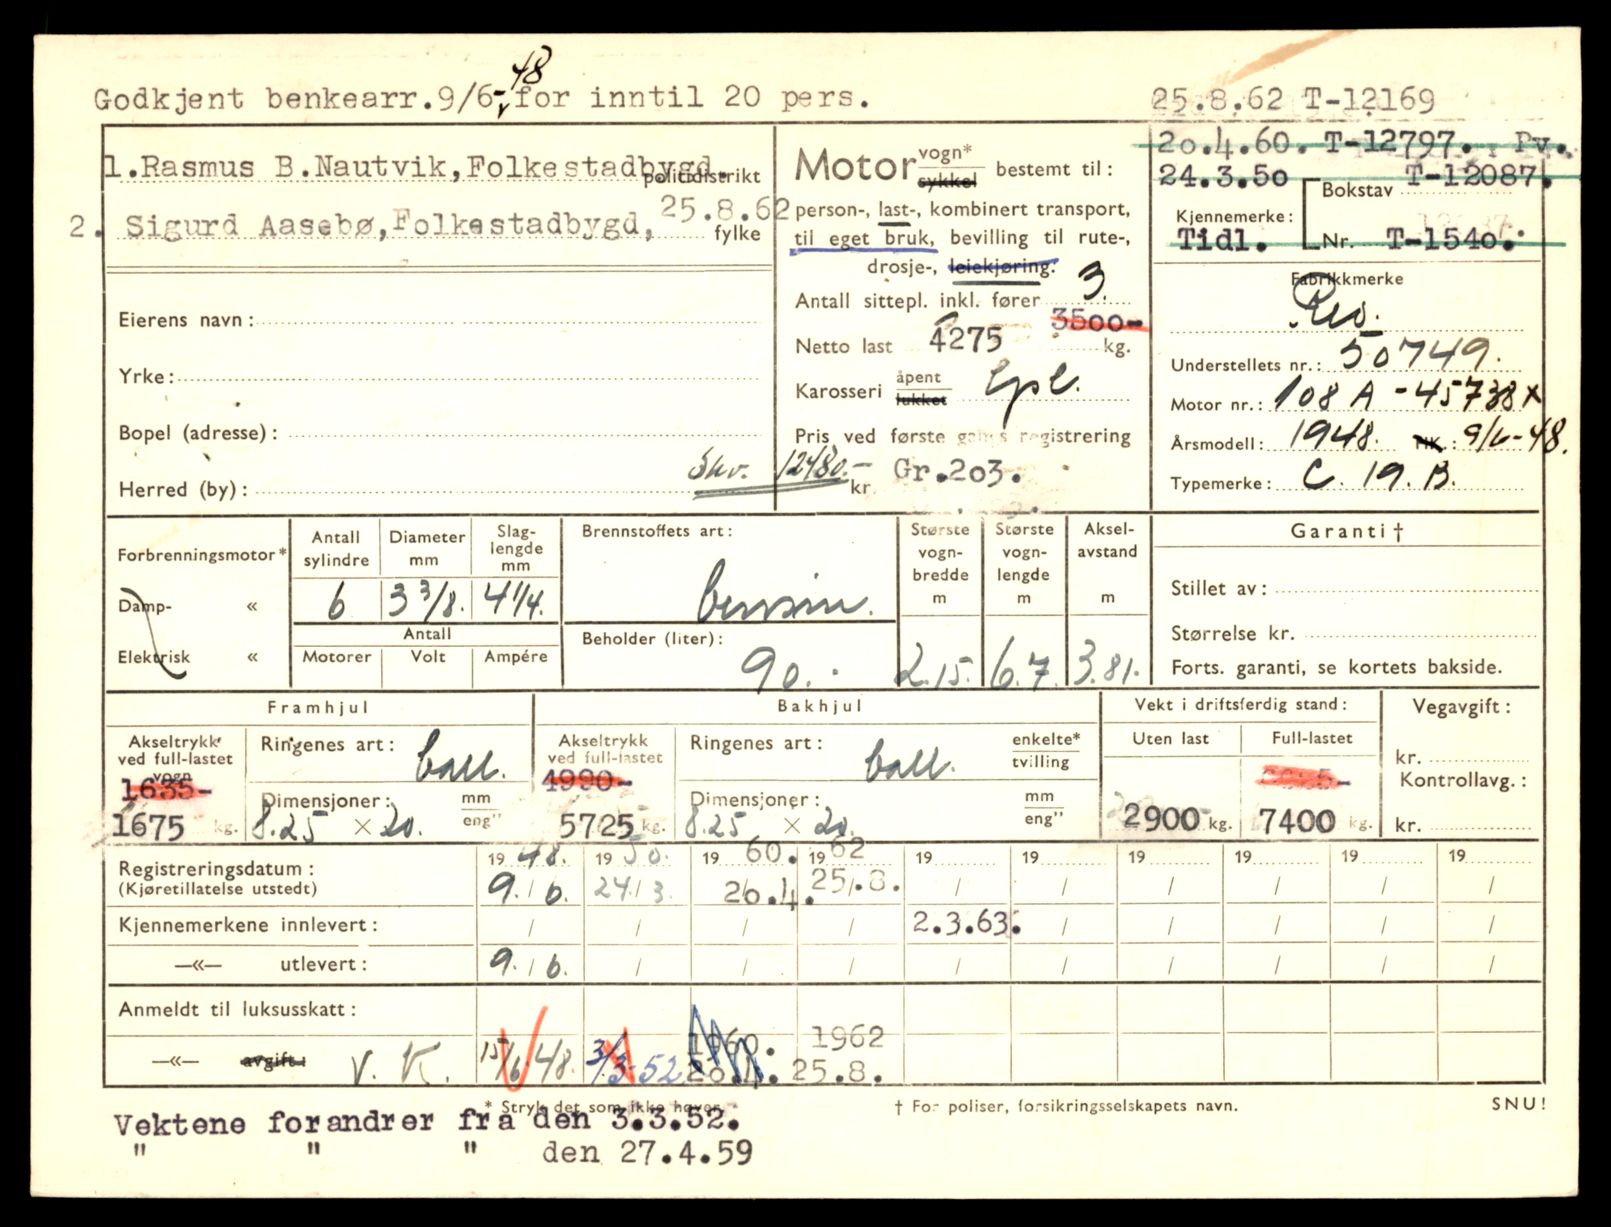 Godkjent benkearr.9/6-48 for inntil 20 pers.
25.8.62 T-12169
20.4.60. T-12797. Pv.
24.3.50 T-12087.
Bokstav
Kjennemerke:
Tidl. Nr. T-1540.
1.Rasmus B.Nautvik,Folkestadbygd.
politidistrikt
2. Sigurd Aasebø,Folkestadbygd, 25.8.62
fylke
Eierens navn:
Yrke:
Bopel (adresse):
Herred (by):
Skv. 12480.-
Motor vogn* sykkel bestemt til:
person-, last-, kombinert transport,
til eget bruk, bevilling til rute-,
drosje-, leiekjøring.
Antall sittepl. inkl. fører 3.
3500-
Netto last 4275 kg.
Karosseri åpent lukket Lpl.
Pris ved første gangs registrering
kr. Gr.203.
Fabrikkmerke
Reo.
Understellets nr.: 50749.
Motor nr.: 108 A - 45738 x
Årsmodell: 1948. HK.: 9/6-48.
Typemerke: C. 19. B.
Forbrenningsmotor*
Damp- «
Elektrisk «
Antall sylindre
Diameter mm
Slag-lengde mm
6 3 3/8. 4 1/4.
Antall
Motorer Volt Ampére
Brennstoffets art:
bensin.
Beholder (liter):
90.
Største vogn-bredde m
Største vogn-lengde m
Aksel-avstand m
2.15. 6.7. 3.81.
Garanti †
Stillet av:
Størrelse kr.
Forts. garanti, se kortets bakside.
Framhjul
Akseltrykk ved full-lastet vogn
1635-
1675 kg.
Ringenes art: ball.
Dimensjoner: mm eng"
8.25 × 20.
Bakhjul
Akseltrykk ved full-lastet
4990-
5725 kg.
Ringenes art: ball. enkelte* tvilling
Dimensjoner: mm eng"
8.25 × 20.
Vekt i driftsferdig stand:
Uten last Full-lastet
2900 kg. 7400 kg.
Vegavgift:
kr.
Kontrollavg.:
kr.
Registreringsdatum: 19 48. 19 50. 19 60. 19 62 19 19 19 19 19 19
(Kjøretillatelse utstedt) 9. / 6. 24. / 3. 20.4. 25/.8. / / / / / /
Kjennemerkene innlevert: / / / / 2.3.63. / / / / /
—«— utlevert: 9. / 6. / / / / / / / / /
Anmeldt til luksusskatt:
1960. 1962
—«— avgift: V. K. 15/6 48. 3/3-52 20.4. 25.8.
* Stryk det som ikke høver. † For poliser, forsikringsselskapets navn. SNU!
Vektene forandrer fra den 3.3.52.
" " " den 27.4.59